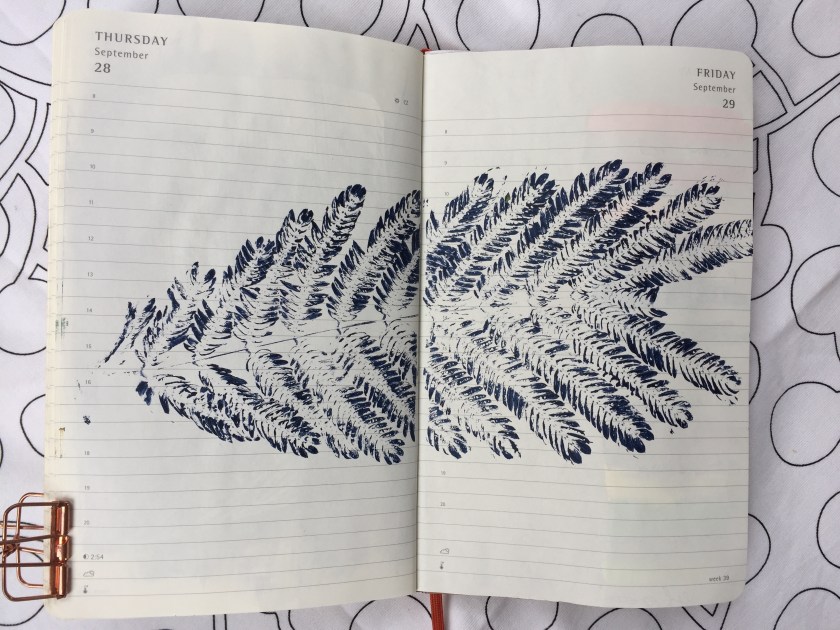 THURSDAY
September
28
8
9
10
11
12
13
14
15
16
18
19
20
2:54
FRIDAY
September
29
8
9
10
19
20
week 39